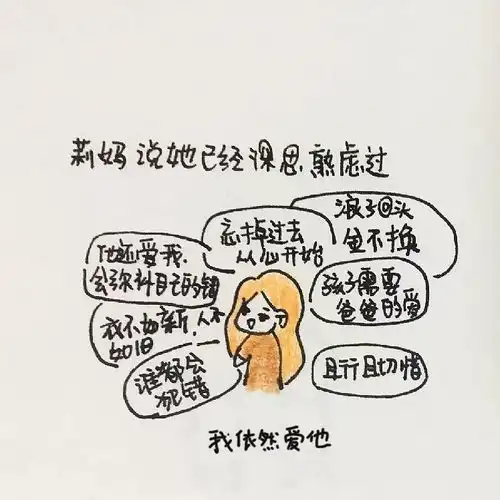 莉妈说她已经深思熟虑过
浪子回头
金不换
忘掉过去
从心开始
他还爱我,
会弥补自己的错
孩子需要
爸爸的爱
衣不如新,人不
如旧
谁都会
犯错
且行且切惜
我依然爱他